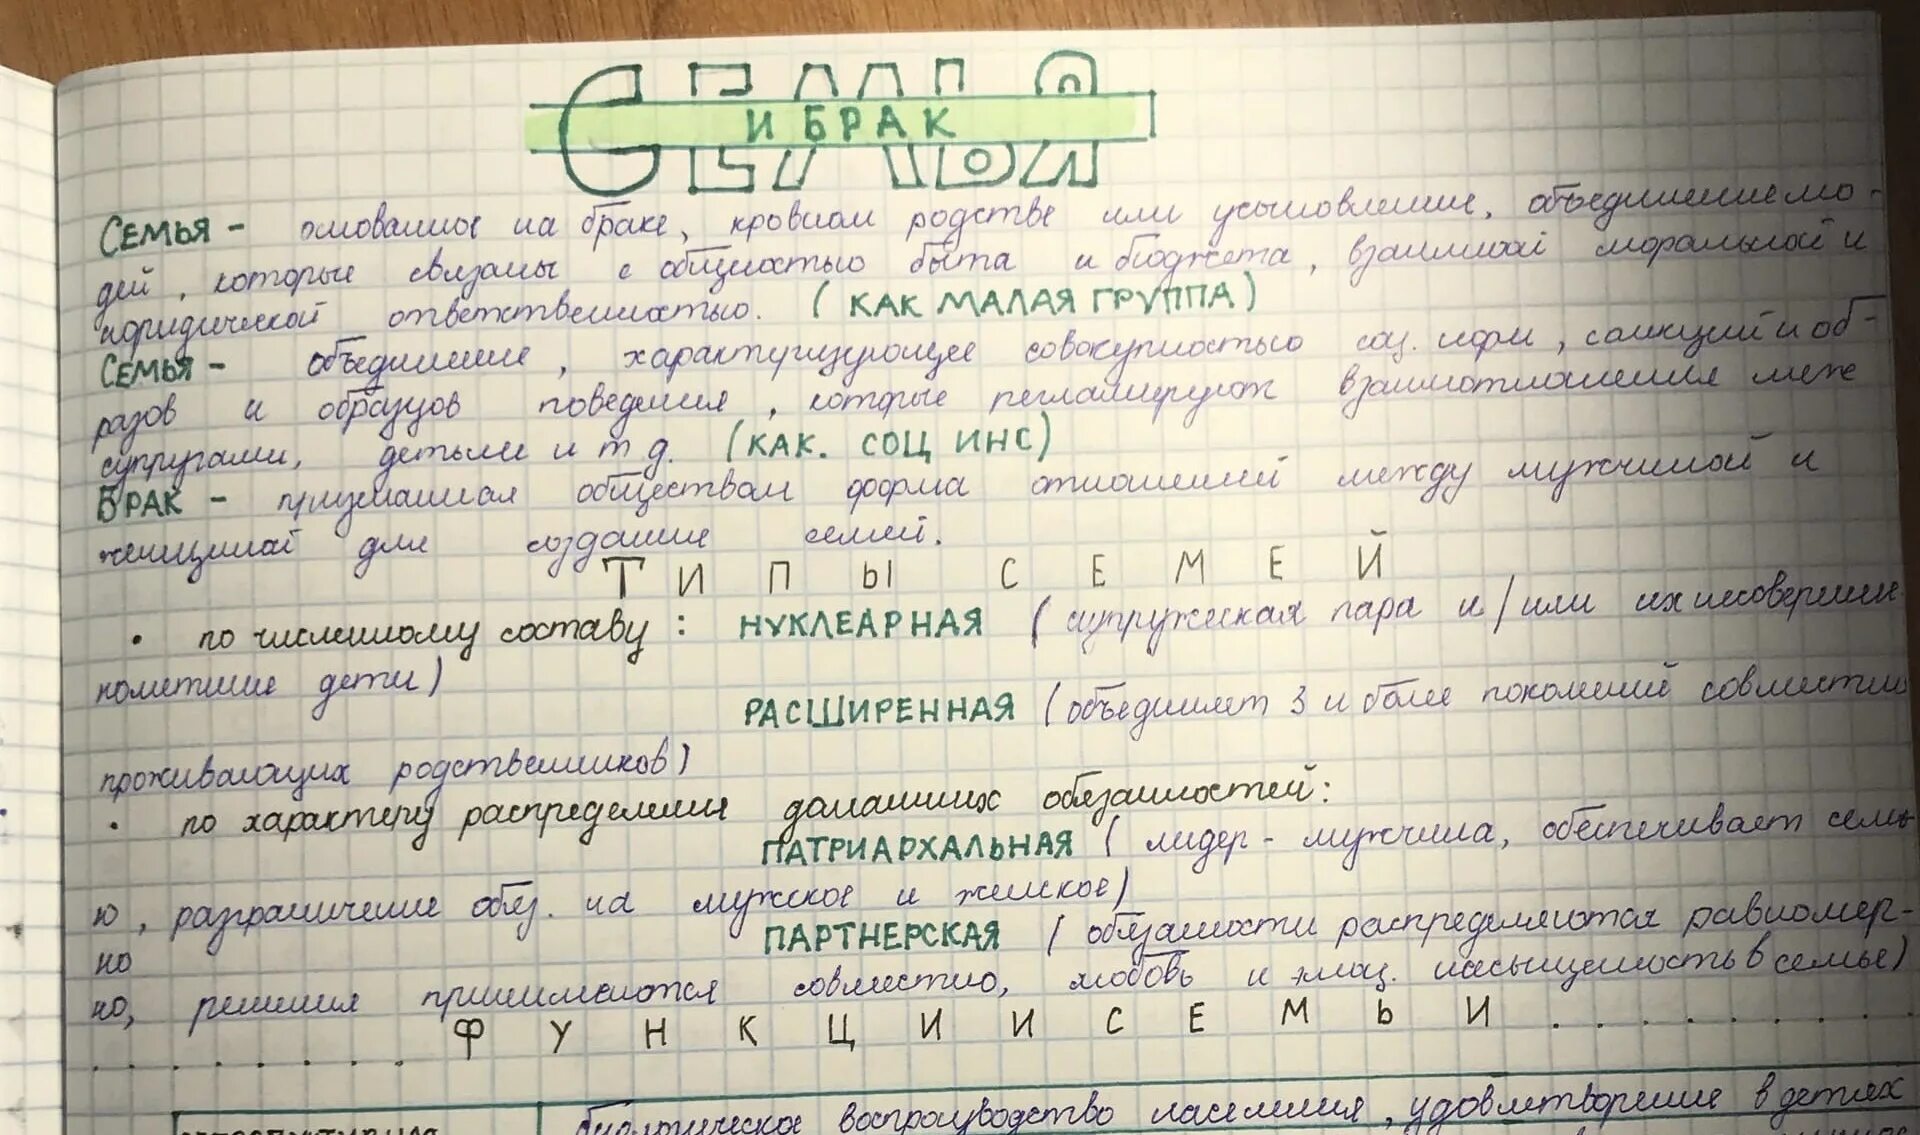 СЕМЬЯ
И БРАК
СЕМЬЯ - основанное на браке, кровном родстве или усыновлении, объединение лю-
дей, которые связаны с общностью быта и бюджета, взаимной моральной и
юридической ответственностью. (КАК МАЛАЯ ГРУППА)
СЕМЬЯ - объединение, характеризующее совокупностью соц. норм, санкций и об-
разов и образцов поведения, которые регламируют взаимоотношения меж
супругами, детьми и т д. (КАК. СОЦ ИНС)
БРАК - признанная обществом форма отношений между мужчиной и
женщиной для создание семей.
ТИПЫ СЕМЕЙ
• по численному составу: НУКЛЕАРНАЯ (супружеская пара и/или их несовершен
нолетние дети)
РАСШИРЕННАЯ (объединяет 3 и более поколений совместно
проживающих родственников)
• по характеру распределения домашних обязанностей:
ПАТРИАРХАЛЬНАЯ (лидер - мужчина, обеспечивает семь-
ю, разграничение обяз. на мужское и женское)
ПАРТНЕРСКАЯ (обязанности распределяются равномер-
но
но, решения принимаются совместно, любовь и эмоц. насыщенность в семье)
ФУНКЦИИ СЕМЬИ . . . . . . . . .
биологическое воспроизводство населения, удовлетворение в детях